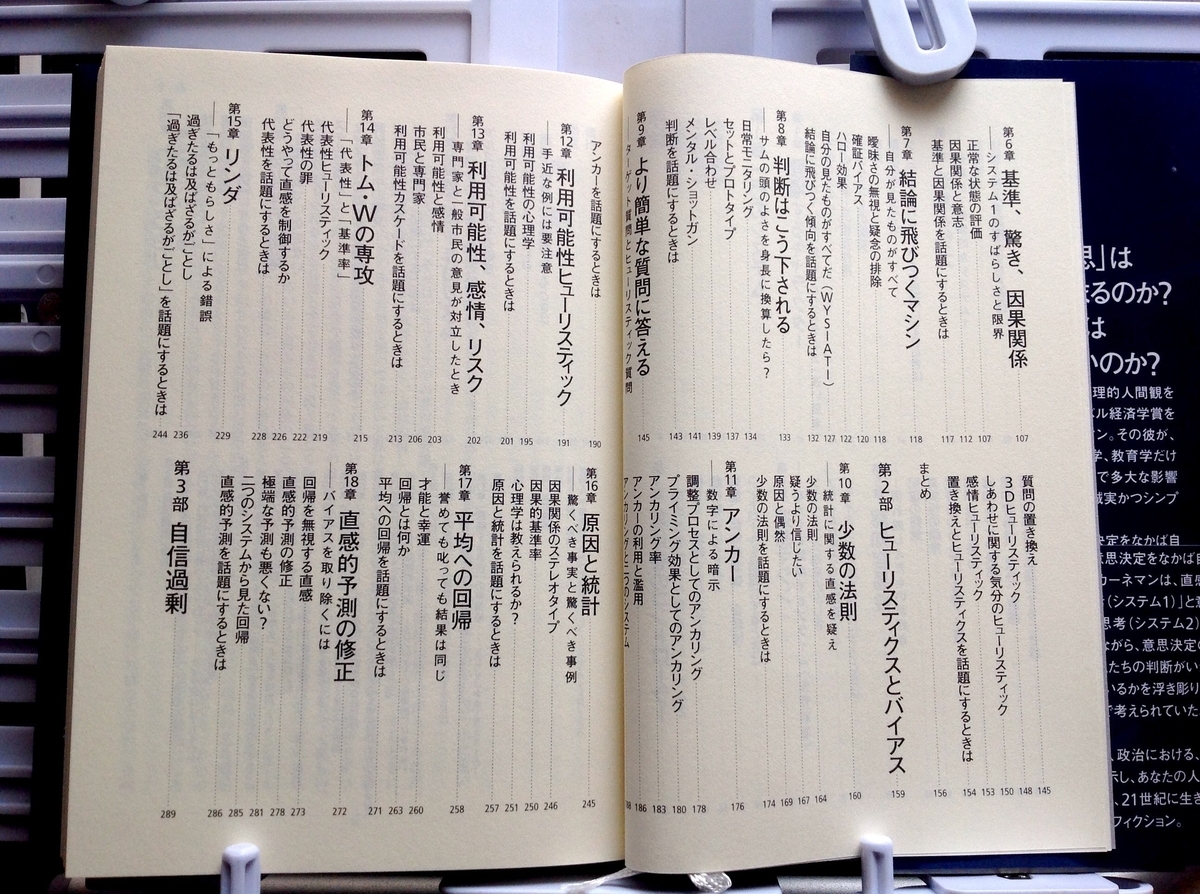 第6章 基準、驚き、因果関係 107
――システム1のすばらしさと限界
正常な状態の評価 107
因果関係と意志 112
基準と因果関係を話題にするときは 117
第7章 結論に飛びつくマシン 118
――自分が見たものがすべて
曖昧さの無視と疑念の排除 118
確証バイアス 120
ハロー効果 122
自分の見たものがすべてだ(WYSIATI) 127
結論に飛びつく傾向を話題にするときは 132
第8章 判断はこう下される 133
――サムの頭のよさを身長に換算したら?
日常モニタリング 134
セットとプロトタイプ 137
レベル合わせ 139
メンタル・ショットガン 141
判断を話題にするときは 143
第9章 より簡単な質問に答える 145
――ターゲット質問とヒューリスティック質問
質問の置き換え 145
3Dヒューリスティック 148
しあわせに関する気分のヒューリスティック 150
感情ヒューリスティック 153
置き換えとヒューリスティクスを話題にするときは 154
まとめ 156
第2部 ヒューリスティクスとバイアス 159
第10章 少数の法則 160
――統計に関する直感を疑え
少数の法則 164
疑うより信じたい 167
原因と偶然 169
少数の法則を話題にするときは 174
第11章 アンカー 176
――数字による暗示
調整プロセスとしてのアンカリング 178
プライミング効果としてのアンカリング 180
アンカリング率 183
アンカーの利用と濫用 186
アンカリングと二つのシステム 188
アンカーを話題にするときは 190
第12章 利用可能性ヒューリスティック 191
――手近な例には要注意
利用可能性の心理学 195
利用可能性を話題にするときは 201
第13章 利用可能性、感情、リスク 202
――専門家と一般市民の意見が対立したとき
利用可能性と感情 203
市民と専門家 206
利用可能性カスケードを話題にするときは 213
第14章 トム・Wの専攻 215
――「代表性」と「基準率」
代表性ヒューリスティック 219
代表性の罪 222
どうやって直感を制御するか 226
代表性を話題にするときは 228
第15章 リンダ 229
――「もっともらしさ」による錯誤
過ぎたるは及ばざるがごとし 236
「過ぎたるは及ばざるがごとし」を話題にするときは 244
第16章 原因と統計 245
――驚くべき事実と驚くべき事例
因果関係のステレオタイプ 246
因果的基準率 250
心理学は教えられるか? 251
原因と統計を話題にするときは 257
第17章 平均への回帰 258
――誉めても叱っても結果は同じ
才能と幸運 260
回帰とは何か 263
平均への回帰を話題にするときは 271
第18章 直感的予測の修正 272
――バイアスを取り除くには
回帰を無視する直感 273
直感的予測の修正 278
極端な予測も悪くない? 281
二つのシステムから見た回帰 285
直感的予測を話題にするときは 286
第3部 自信過剰 289
思」は
るのか?
は
いのか?
理的人間観を
ル経済学賞を
ン。その彼が、
学、教育学だけ
で多大な影響
誠実かつシンプ
決定をなかば自
意思決定をなかば自
カーネマンは、直
(システム1)」と
思考(システム2)
ながら、意思決定の
たちの判断がい
いるかを浮き彫り
で考えられていた
、政治における、
示し、あなたの人
、21世紀に生き
フィクション。